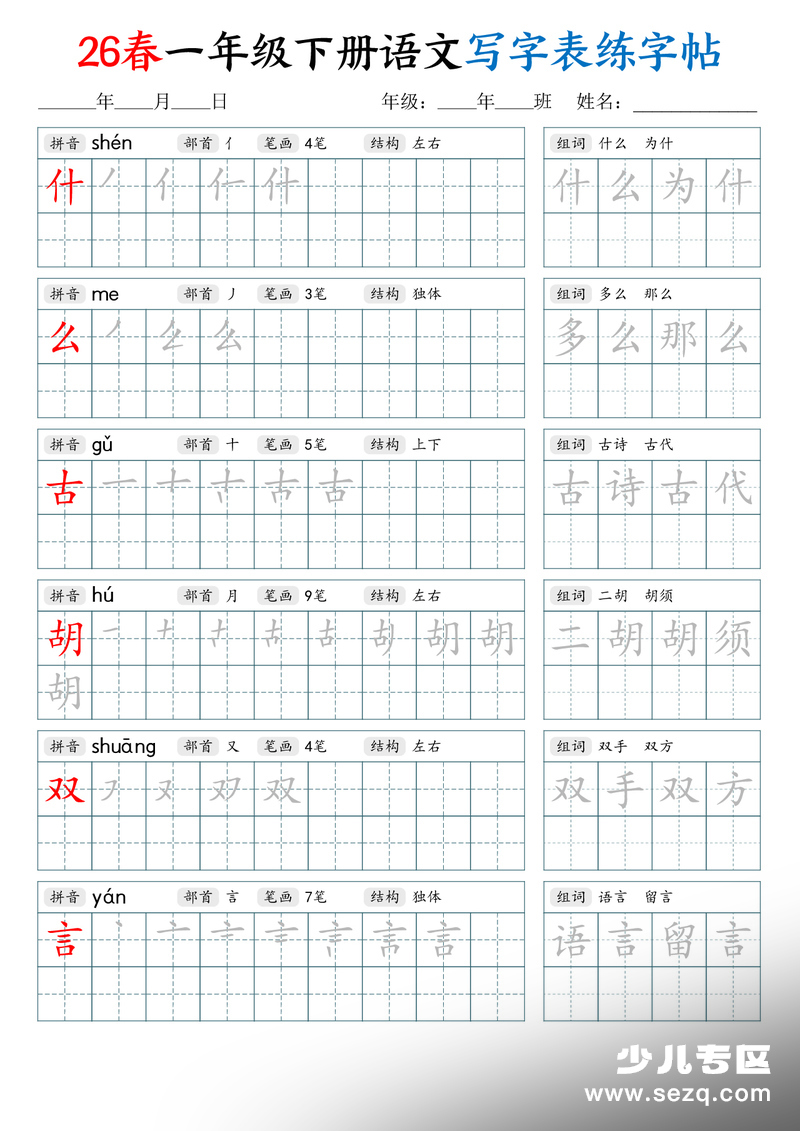 26春一年级下册语文写字表练字帖
______年____月____日 年级：____年____班 姓名：____________
拼音 shén 部首 亻 笔画 4笔 结构 左右 组词 什么 为什
什 丿 亻 什 什 么 为 什
拼音 me 部首 丿 笔画 3笔 结构 独体 组词 多么 那么
么 丿 么 多 么 那 么
拼音 gǔ 部首 十 笔画 5笔 结构 上下 组词 古诗 古代
古 一 十 古 古 诗 古 代
拼音 hú 部首 月 笔画 9笔 结构 左右 组词 二胡 胡须
胡 一 十 古 胡 胡 二 胡 胡 须
胡
拼音 shuāng 部首 又 笔画 4笔 结构 左右 组词 双手 双方
双 又 双 双 手 双 方
拼音 yán 部首 言 笔画 7笔 结构 独体 组词 语言 留言
言 丶 亠 言 语 言 留 言
少儿专区
www.sezq.com